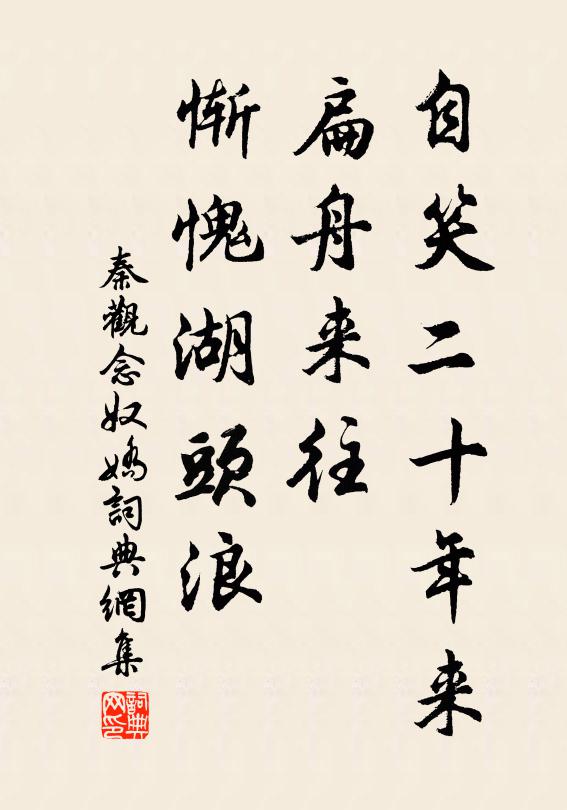 自笑二十年来
扁舟来往
慚愧湖頭浪
秦觀念奴嬌詞典網集
詞典网印